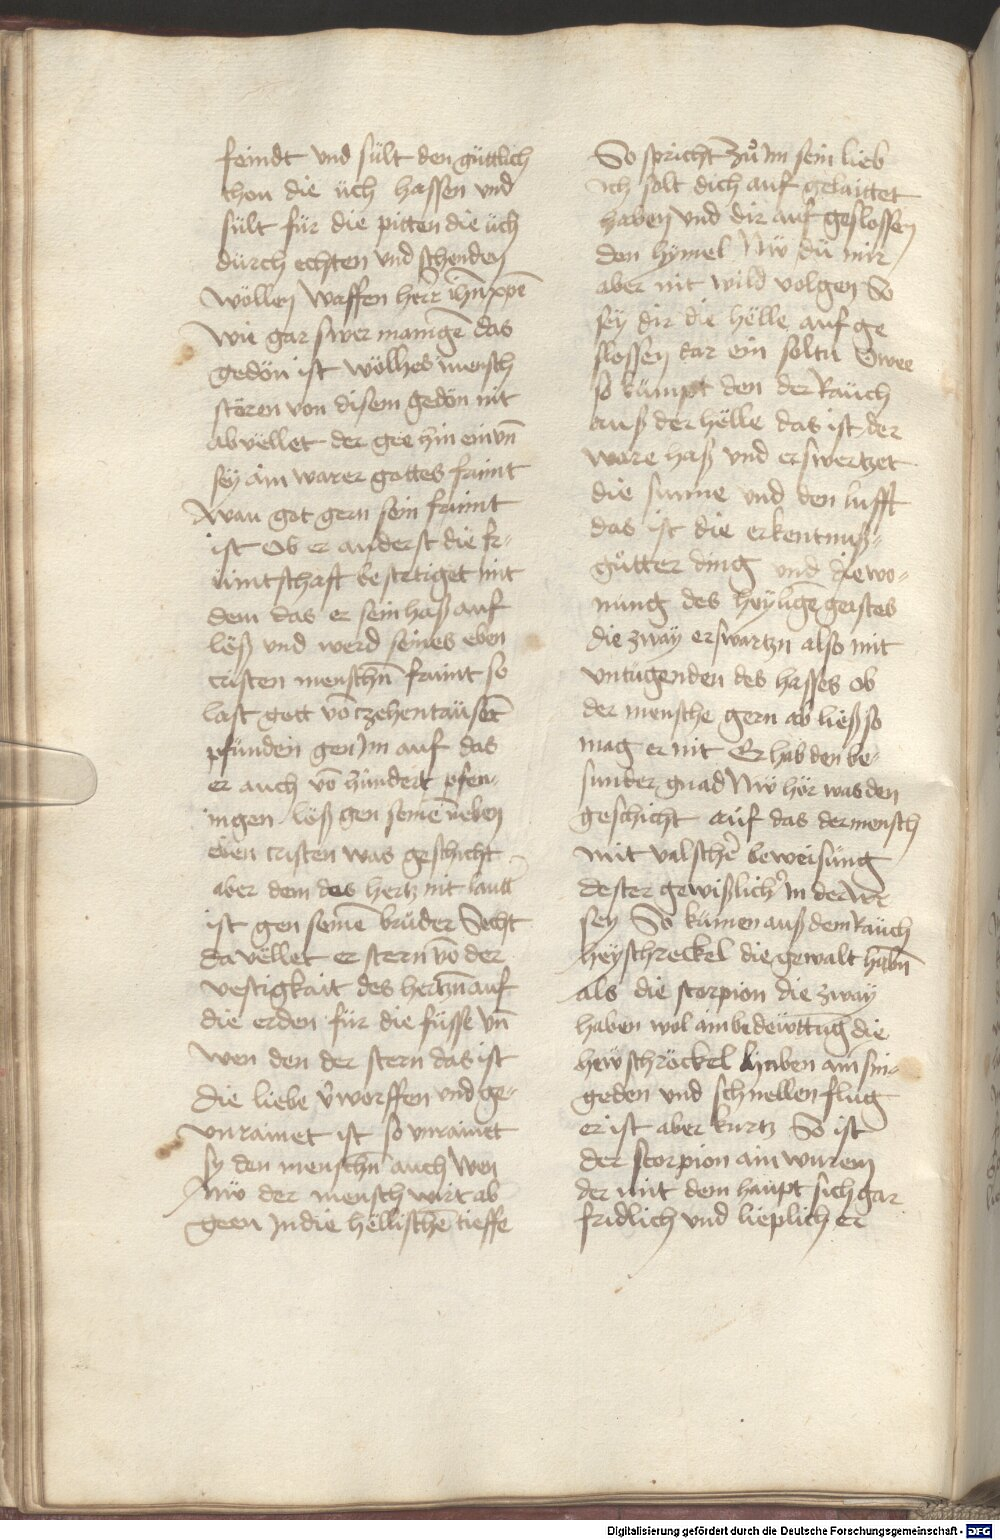 feindt vnd sült den güttlich
thon die üch hassen vnd
sült für die pitten die üch
durch echten vnd schenden
wöllen Waffen herr ihū xp̄e
wie gar swer manigē das
gedön ist wölhes mensch
stören von disem gedön nit
abvellet der gee hin ein vn̄
sey ain warer gottes frünt
wan got gern sein frünt
ist Ob er anderst die fr-
üntschaft bestetiget mit
dem das er sein haß auf
löß vnd werd seines eben
cristen menschn̄ frünt so
last gott vō czehentausēt
pfunden gen jm auf das
er auch vō hundert pfen-
ingen löß gen seinē neben
eben cristen was geschicht
aber dem des hertz nit lautt
ist gen seinē bruder Secht
da vellet er stern vō der
vestigkait des hertzn̄ auf
die erden für die füsse vn̄
wen den der stern das ist
die liebe v̄worffen vnd ge-
vnrainet ist so vnrainet
sy den menschn̄ auch Wen
Nw der mensch wirt ab
geen jn die hellischē tieffe
So spricht zů jm sein lieb
ich solt dich auf gelaittet
haben vnd dir auf geslossen
den hymel Nw du mir
aber nit wild volgen So
sey dir die helle auf ge
slossen dar ein soltu Owee
so kumpt den der Rauch
auß der helle das ist der
ware haß vnd erswertzet
die sunne vnd den lufft
das ist die erkentnuß-
gůtter ding vnd die wo-
nung des heyligē geistes
die zway erswartzn also mit
vntugenden des hasses ob
der mensche gern ab ließ so
mag er nit Er hab den be-
sunder gnad Nw hör was den
geschicht auf das der mensch
mit valscher beweisung
dester gewißlicher in der
sey So kumen auß dem Rauch
heyschreckel die gewalt habn̄
als die scorpion die zway
haben wol ain bedewttug die
hewschröckel haben ain sin-
geden vnd schnellen flug
er ist aber kurtz So ist
der scorpion ain wurem
der mit dem haupt sich gar
fridlich vnd lieplich er
Digitalisierung gefördert durch die Deutsche Forschungsgemeinschaft - DFG